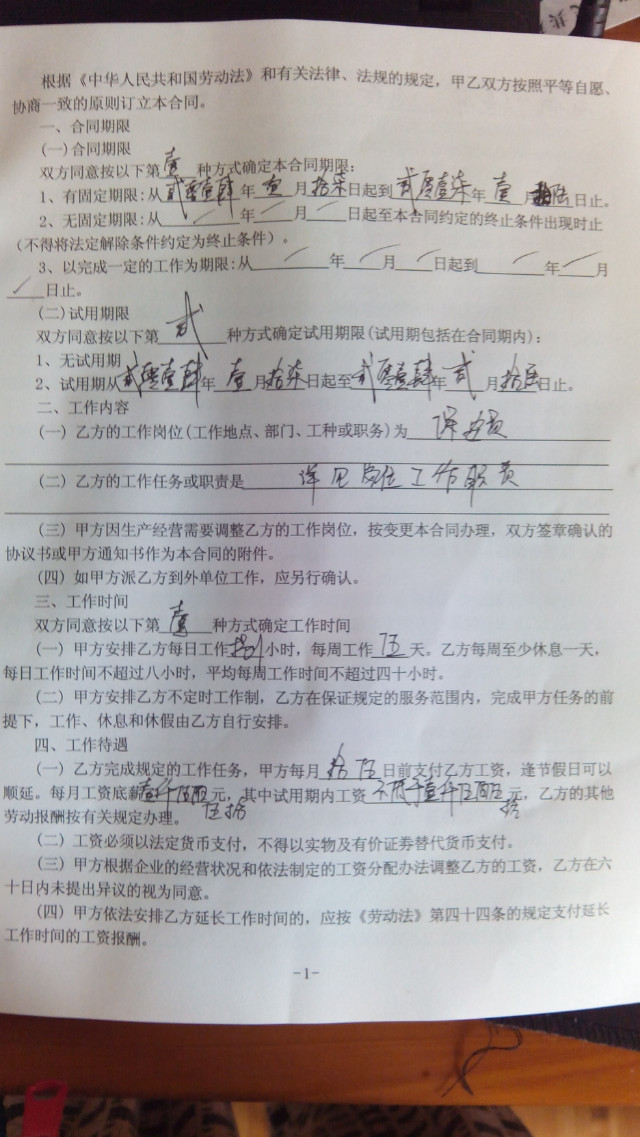 根据《中华人民共和国劳动法》和有关法律、法规的规定，甲乙双方按照平等自愿、
协商一致的原则订立本合同。
一、合同期限
(一)合同期限
双方同意按以下第壹种方式确定本合同期限：
1、有固定期限：从贰零壹肆年壹月拾柒日起到贰零壹柒年壹月拾陆日止。
2、无固定期限：从／年／月／日起至本合同约定的终止条件出现时止
（不得将法定解除条件约定为终止条件）。
3、以完成一定的工作为期限：从／年／月／日起到／年／月
／日止。
(二)试用期限
双方同意按以下第贰种方式确定试用期限(试用期包括在合同期内)：
1、无试用期
2、试用期从贰零壹肆年壹月拾柒日起至贰零壹肆年贰月拾陆日止。
二、工作内容
(一) 乙方的工作岗位(工作地点、部门、工种或职务)为保安员
(二) 乙方的工作任务或职责是详见岗位工作职责
(三) 甲方因生产经营需要调整乙方的工作岗位，按变更本合同办理，双方签章确认的
协议书或甲方通知书作为本合同的附件。
(四) 如甲方派乙方到外单位工作，应另行确认。
三、工作时间
双方同意按以下第壹种方式确定工作时间
(一) 甲方安排乙方每日工作捌小时，每周工作伍天。乙方每周至少休息一天，
每日工作时间不超过八小时，平均每周工作时间不超过四十小时。
(二) 甲方安排乙方不定时工作制，乙方在保证规定的服务范围内，完成甲方任务的前
提下，工作、休息和休假由乙方自行安排。
四、工作待遇
(一) 乙方完成规定的工作任务，甲方每月拾伍日前支付乙方工资，逢节假日可以
顺延。每月工资底薪壹仟伍佰伍拾元，其中试用期内工资不低于壹仟伍佰伍拾元，乙方的其他
劳动报酬按有关规定办理。
(二) 工资必须以法定货币支付，不得以实物及有价证券替代货币支付。
(三) 甲方根据企业的经营状况和依法制定的工资分配办法调整乙方的工资，乙方在六
十日内未提出异议的视为同意。
(四) 甲方依法安排乙方延长工作时间的，应按《劳动法》第四十四条的规定支付延长
工作时间的工资报酬。
-1-